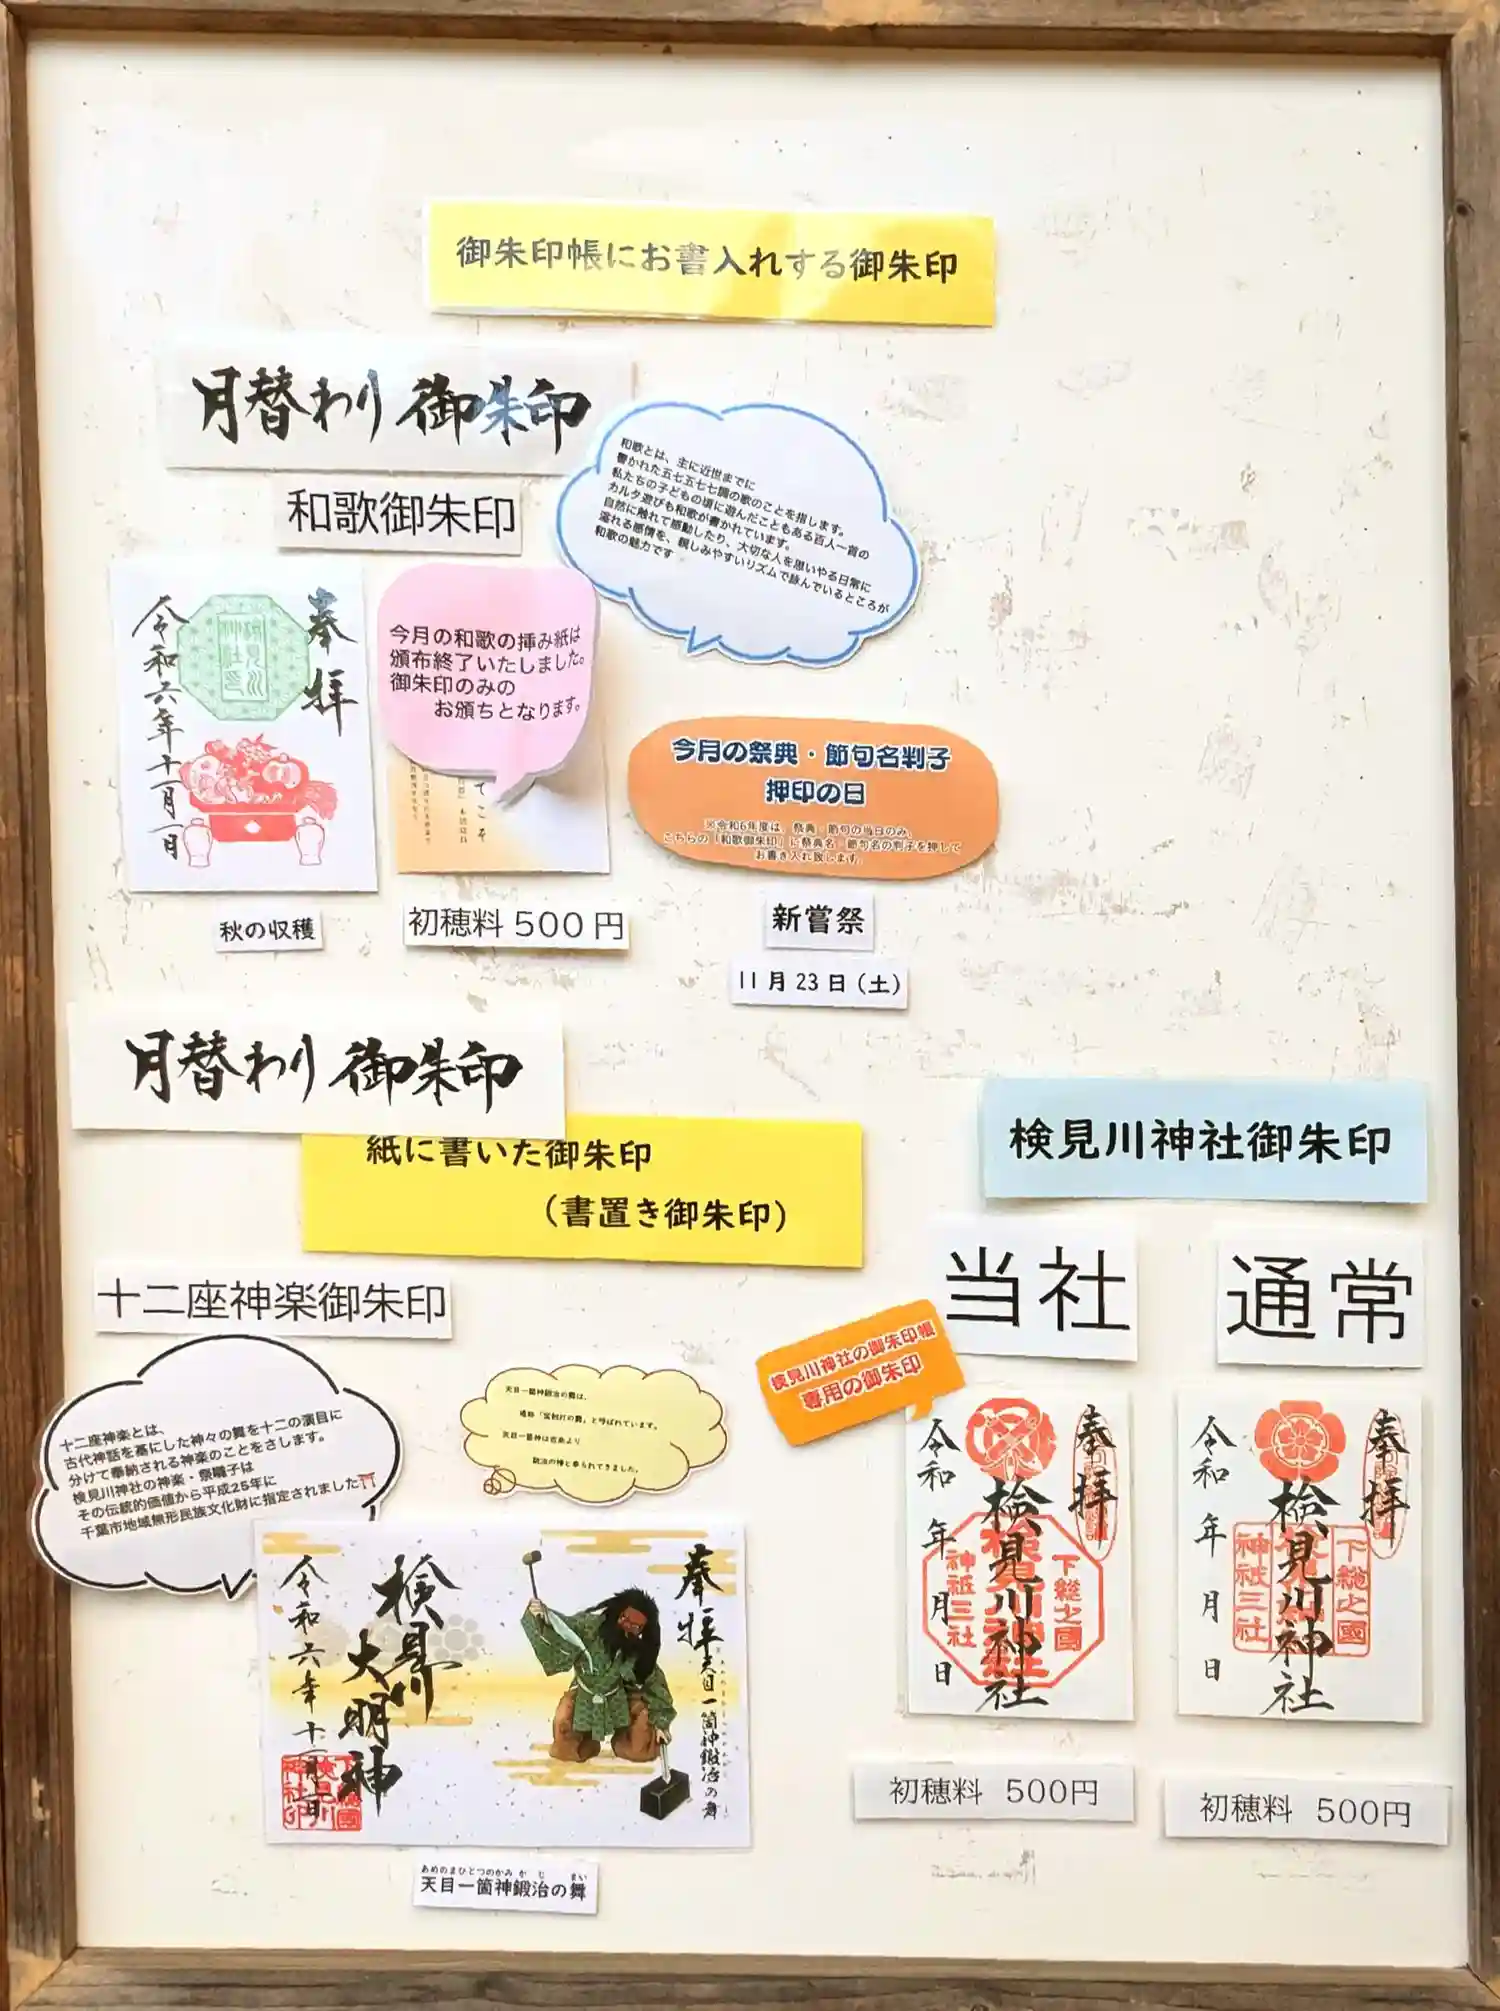 御朱印帳にお書入れする御朱印
月替わり御朱印
和歌御朱印
和歌とは、主に近世までに
書かれた五七五七七調の歌のことを指します。
私たちの子どもの頃に遊んだこともある百人一首の
カルタ遊びも和歌が書かれています。
自然に触れて感動したり、大切な人を思いやる日常に
溢れる感情を、親しみやすいリズムで詠んでいるところが
和歌の魅力です
奉拝
検見川
神社印
令和六年十一月一日
今月の和歌の挿み紙は
頒布終了いたしました。
御朱印のみの
お頒ちとなります。
てこそ
秋の収穫
初穂料 500 円
今月の祭典・節句名判子
押印の日
※令和6年度は、祭典・節句の当日のみ、
こちらの「和歌御朱印」に祭典名・節句名の判子を押して
お書き入れ致します。
新嘗祭
11 月 23 日（土）
月替わり御朱印
紙に書いた御朱印
（書置き御朱印）
十二座神楽御朱印
十二座神楽とは、
古代神話を基にした神々の舞を十二の演目に
分けて奉納される神楽のことをさします。
検見川神社の神楽・祭囃子は
その伝統的価値から平成25年に
千葉市地域無形民族文化財に指定されました
天目一箇神鍛治の舞は、
通称「宝剣打の舞」と呼ばれています。
天目一箇神は古来より
鍛治の神と奉られてきました。
奉拝
天目一箇神鍛治の舞
検見川
大明神
令和六年十一月一日
あめのまひとつのかみかじ まい
天目一箇神鍛治の舞
検見川神社御朱印
当社
検見川神社の御朱印帳
専用の御朱印
奉拝
下総之国
検見川神社
神祇三社
令和 年 月 日
初穂料 500円
通常
奉拝
下総之國
検見川神社
神祇三社
令和 年 月 日
初穂料 500円